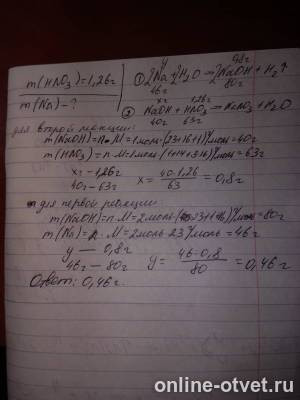 m(HNO₃)=1,26г
m(Na)-?
0,8г
① 2Na+2H₂O=2NaOH+H₂↑
46г 80г
xг 1,26г
② NaOH+HNO₃=NaNO₃+H₂O
40г 63г
для второй реакции:
m(NaOH)=n·M=1моль·(23+16+1)г/моль=40г
m(HNO₃)=n·M=1моль·(1+14+3·16)г/моль=63г
xг-1,26г
40г-63г
x=40·1,26/63=0,8г
для первой реакции:
m(NaOH)=n·M=2моль·(23+16+1)г/моль=80г
m(Na)=n·M=2моль·23г/моль=46г
y — 0,8г
46г-80г
y=46·0,8/80=0,46г
Ответ: 0,46г.
online-otvet.ru